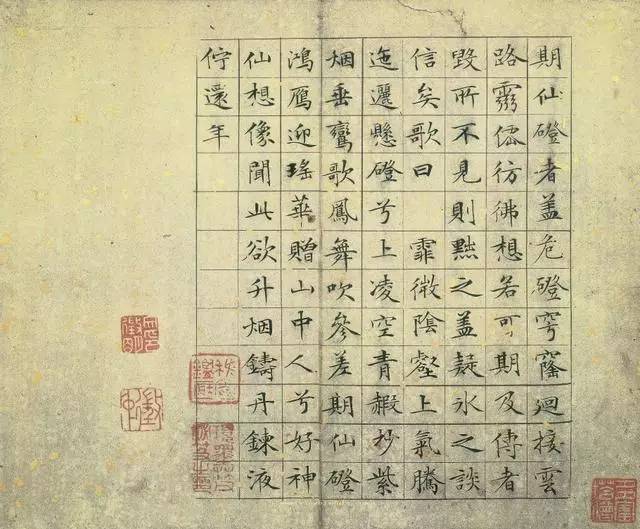 期仙磴者盖危磴穹窿迴接雲
路霛僊彷彿想若可期及傳者
毀所不見則黜之盖疑冰之談
信矣歌曰　霏微陰壑上氣騰
迤邐懸磴兮上凌空青赮杪紫
烟垂鸞歌鳳舞吹參差期仙磴
鴻鴈迎瑤華贈山中人兮好神
仙想像聞此欲升烟鑄丹鍊液
佇還年